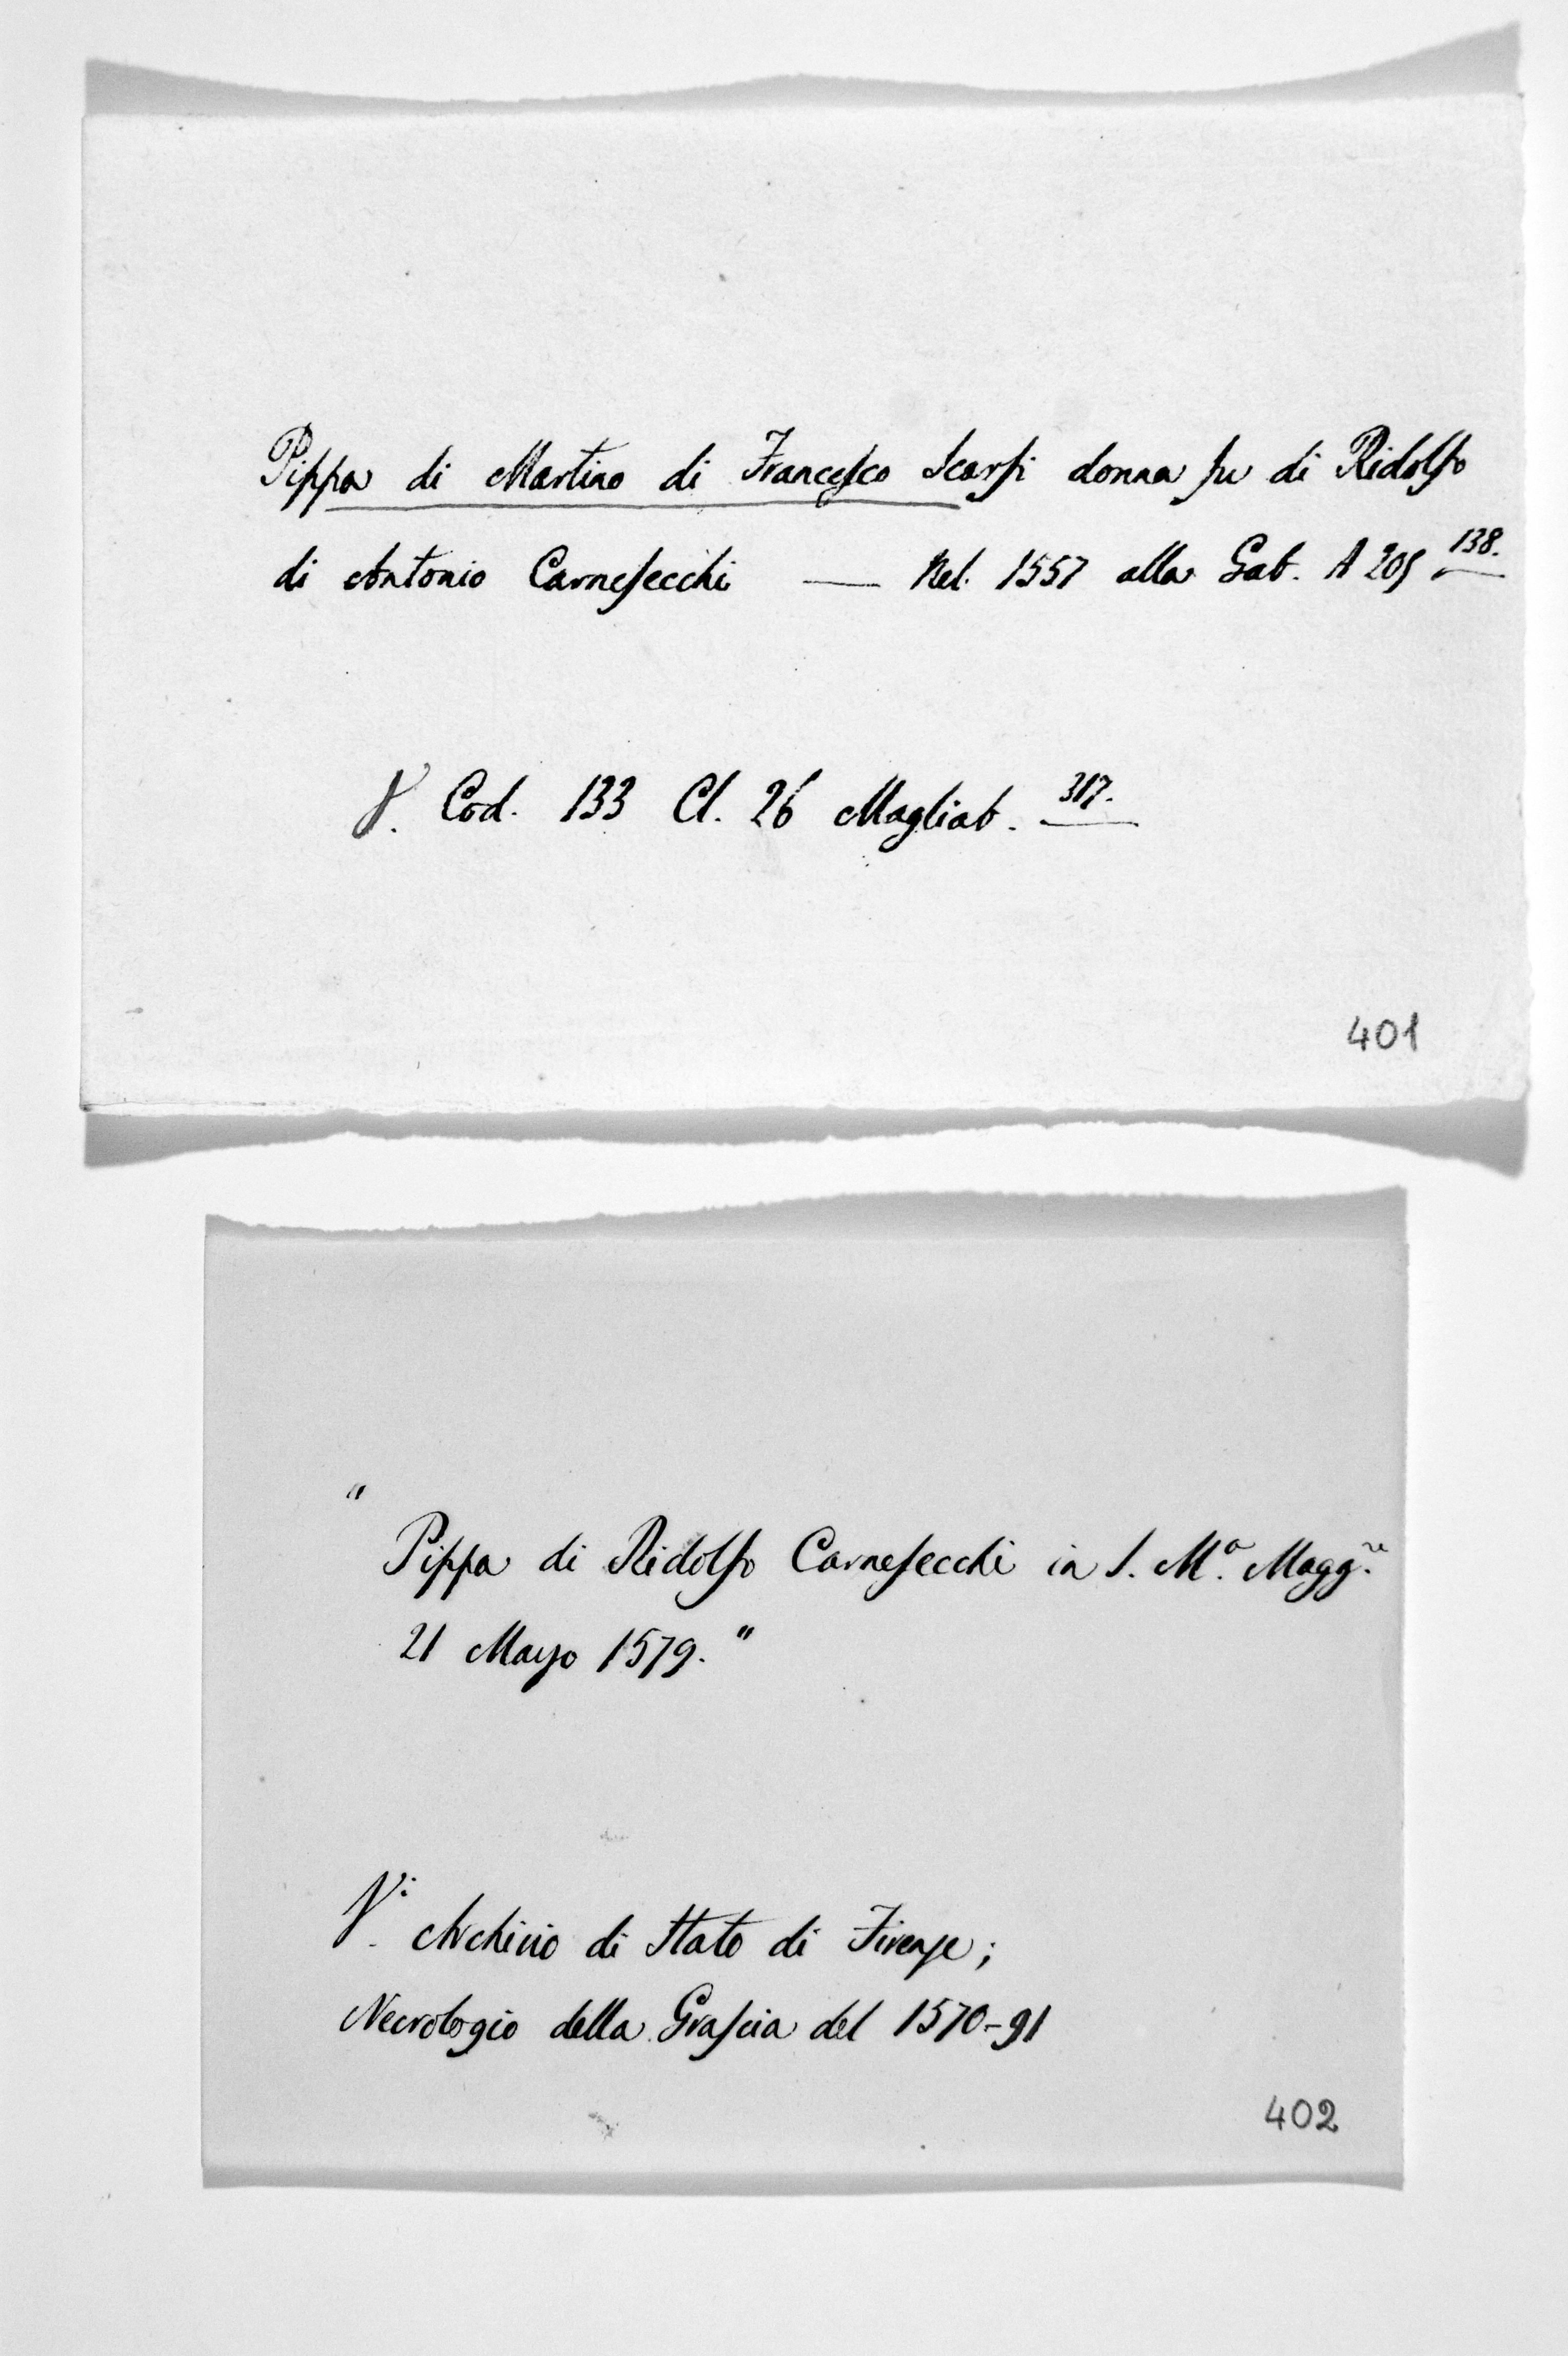 Pippa di Martino di Francesco Scarfi donna fu di Ridolfo
di Antonio Carnesecchi — Nel 1557 alla Gab. A 205 138.
V. Cod. 133 Cl. 26 Magliab. 317.
401
"Pippa di Ridolfo Carnesecchi in S. Mª. Magg.re
21 Mayo 1579."
V. Archivio di Stato di Firenze;
Necrologio della Grascia del 1570-91
402